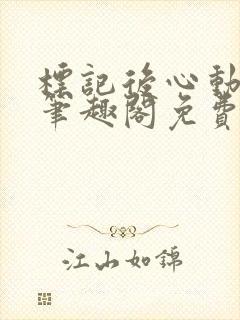 標記後心動
筆趣閣免費
江山如錦